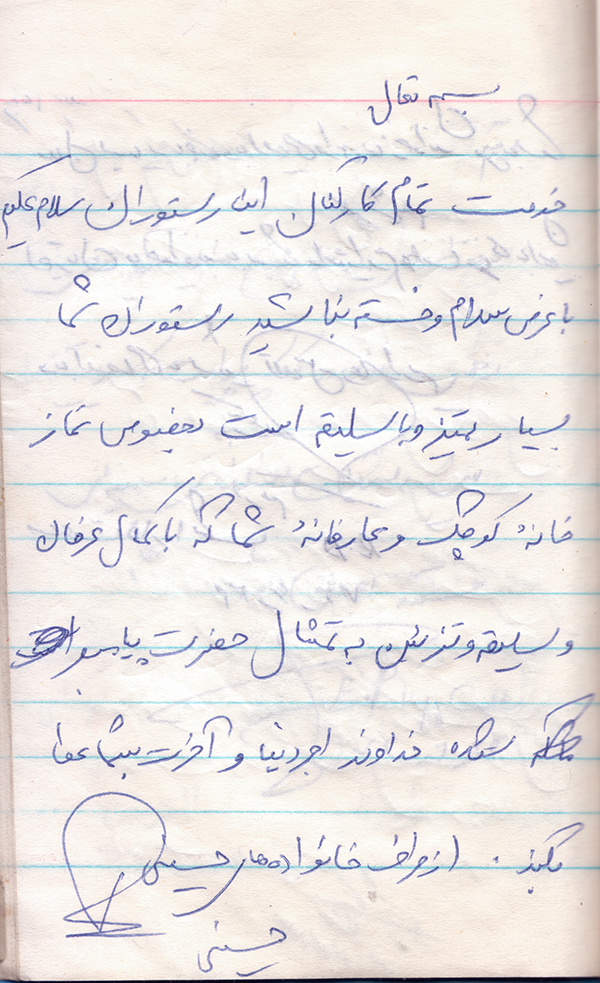 بسمه تعالی
خدمت تمام کارکنان این رستوران سلام علیکم
با عرض سلام و خسته نباشید رستوران شما
بسیار تمیز و با سلیقه است بخصوص نماز
خانهٔ کوچک و عارفانهٔ شما که با کمال عرفان
و سلیقه و تزئین به تمثال حضرت پیامبر
شده خداوند اجر دنیا و آخرت بشما عطا
بکند . از طرف خانواده‌های حسینی
حسینی